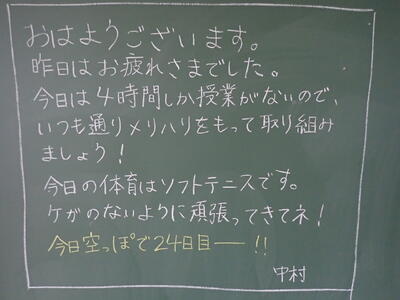 おはようございます。
昨日はお疲れさまでした。
今日は4時間しか授業がないので、
いつも通りメリハリをもって取り組み
ましょう！
今日の体育はソフトテニスです。
ケガのないように頑張ってきてネ！
今日空っぽで24日目ー!!
中村